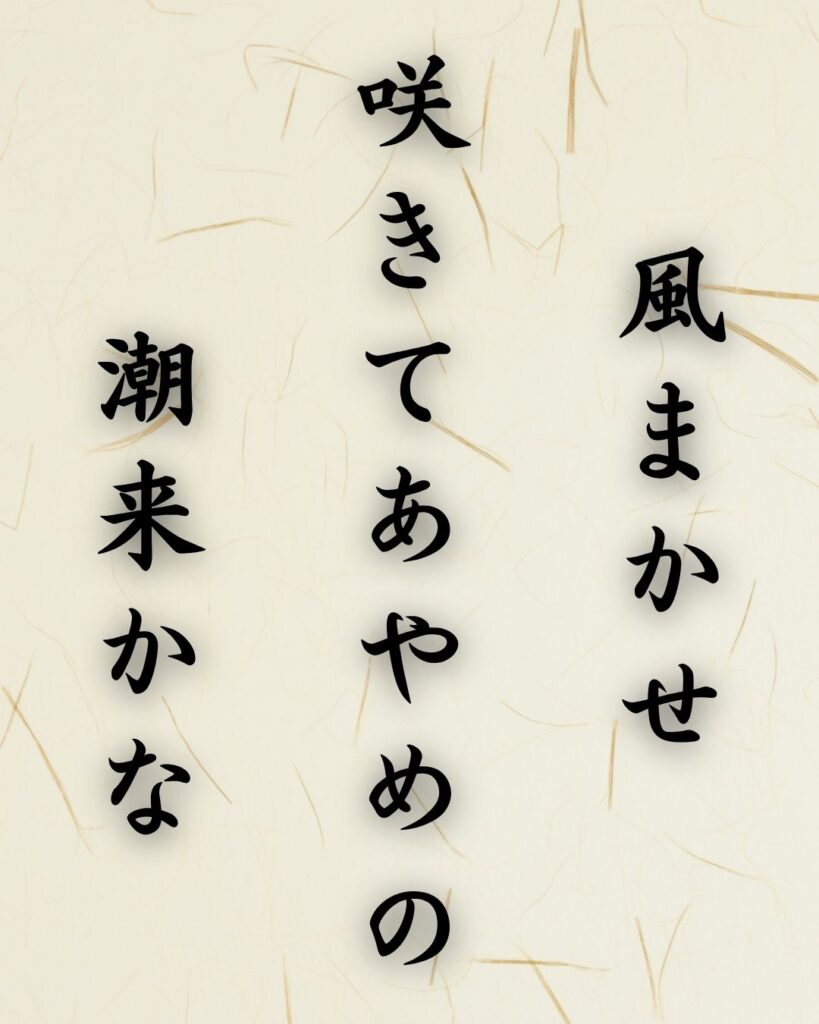 風まかせ
咲きてあやめの
潮来かな